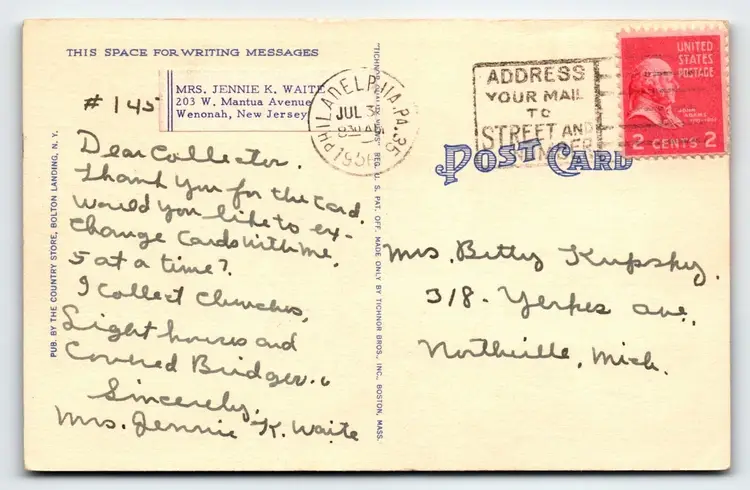 THIS SPACE FOR WRITING MESSAGES
MRS. JENNIE K. WAITE
203 W. Mantua Avenue
Wenonah, New Jersey
#145
Dear Collector.
Thank you for the card.
Would you like to ex-
change Cards with me,
5 at a time?
I collect Churches,
Light houses and
Covered Bridges.
Sincerely,
Mrs. Jennie K. Waite
PUB. BY THE COUNTRY STORE, BOLTON LANDING, N. Y.
REG. U. S. PAT. OFF. MADE ONLY BY TICHNOR BROS., INC., BOSTON, MASS.
PHILADELPHIA, PA. 35
JUL 3
ADDRESS
YOUR MAIL
TO
STREET AND
NUMBER
UNITED
STATES
POSTAGE
JOHN
ADAMS
2 CENTS 2
POST CARD
Mrs. Betty Kupsky.
318 - Yerkes ave,
Northville, Mich.